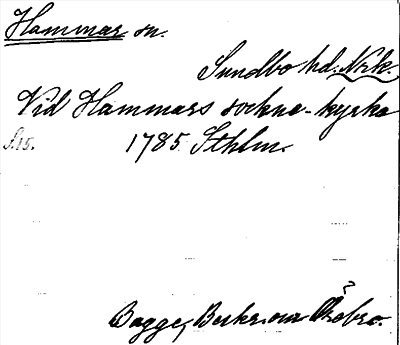 Hammar sn.
Sundbo hd. Nrk.
Vid Hammars sockne-kyrka
S.15. 1785 Sthlm.
Bagge, Beskr. om Örebro.